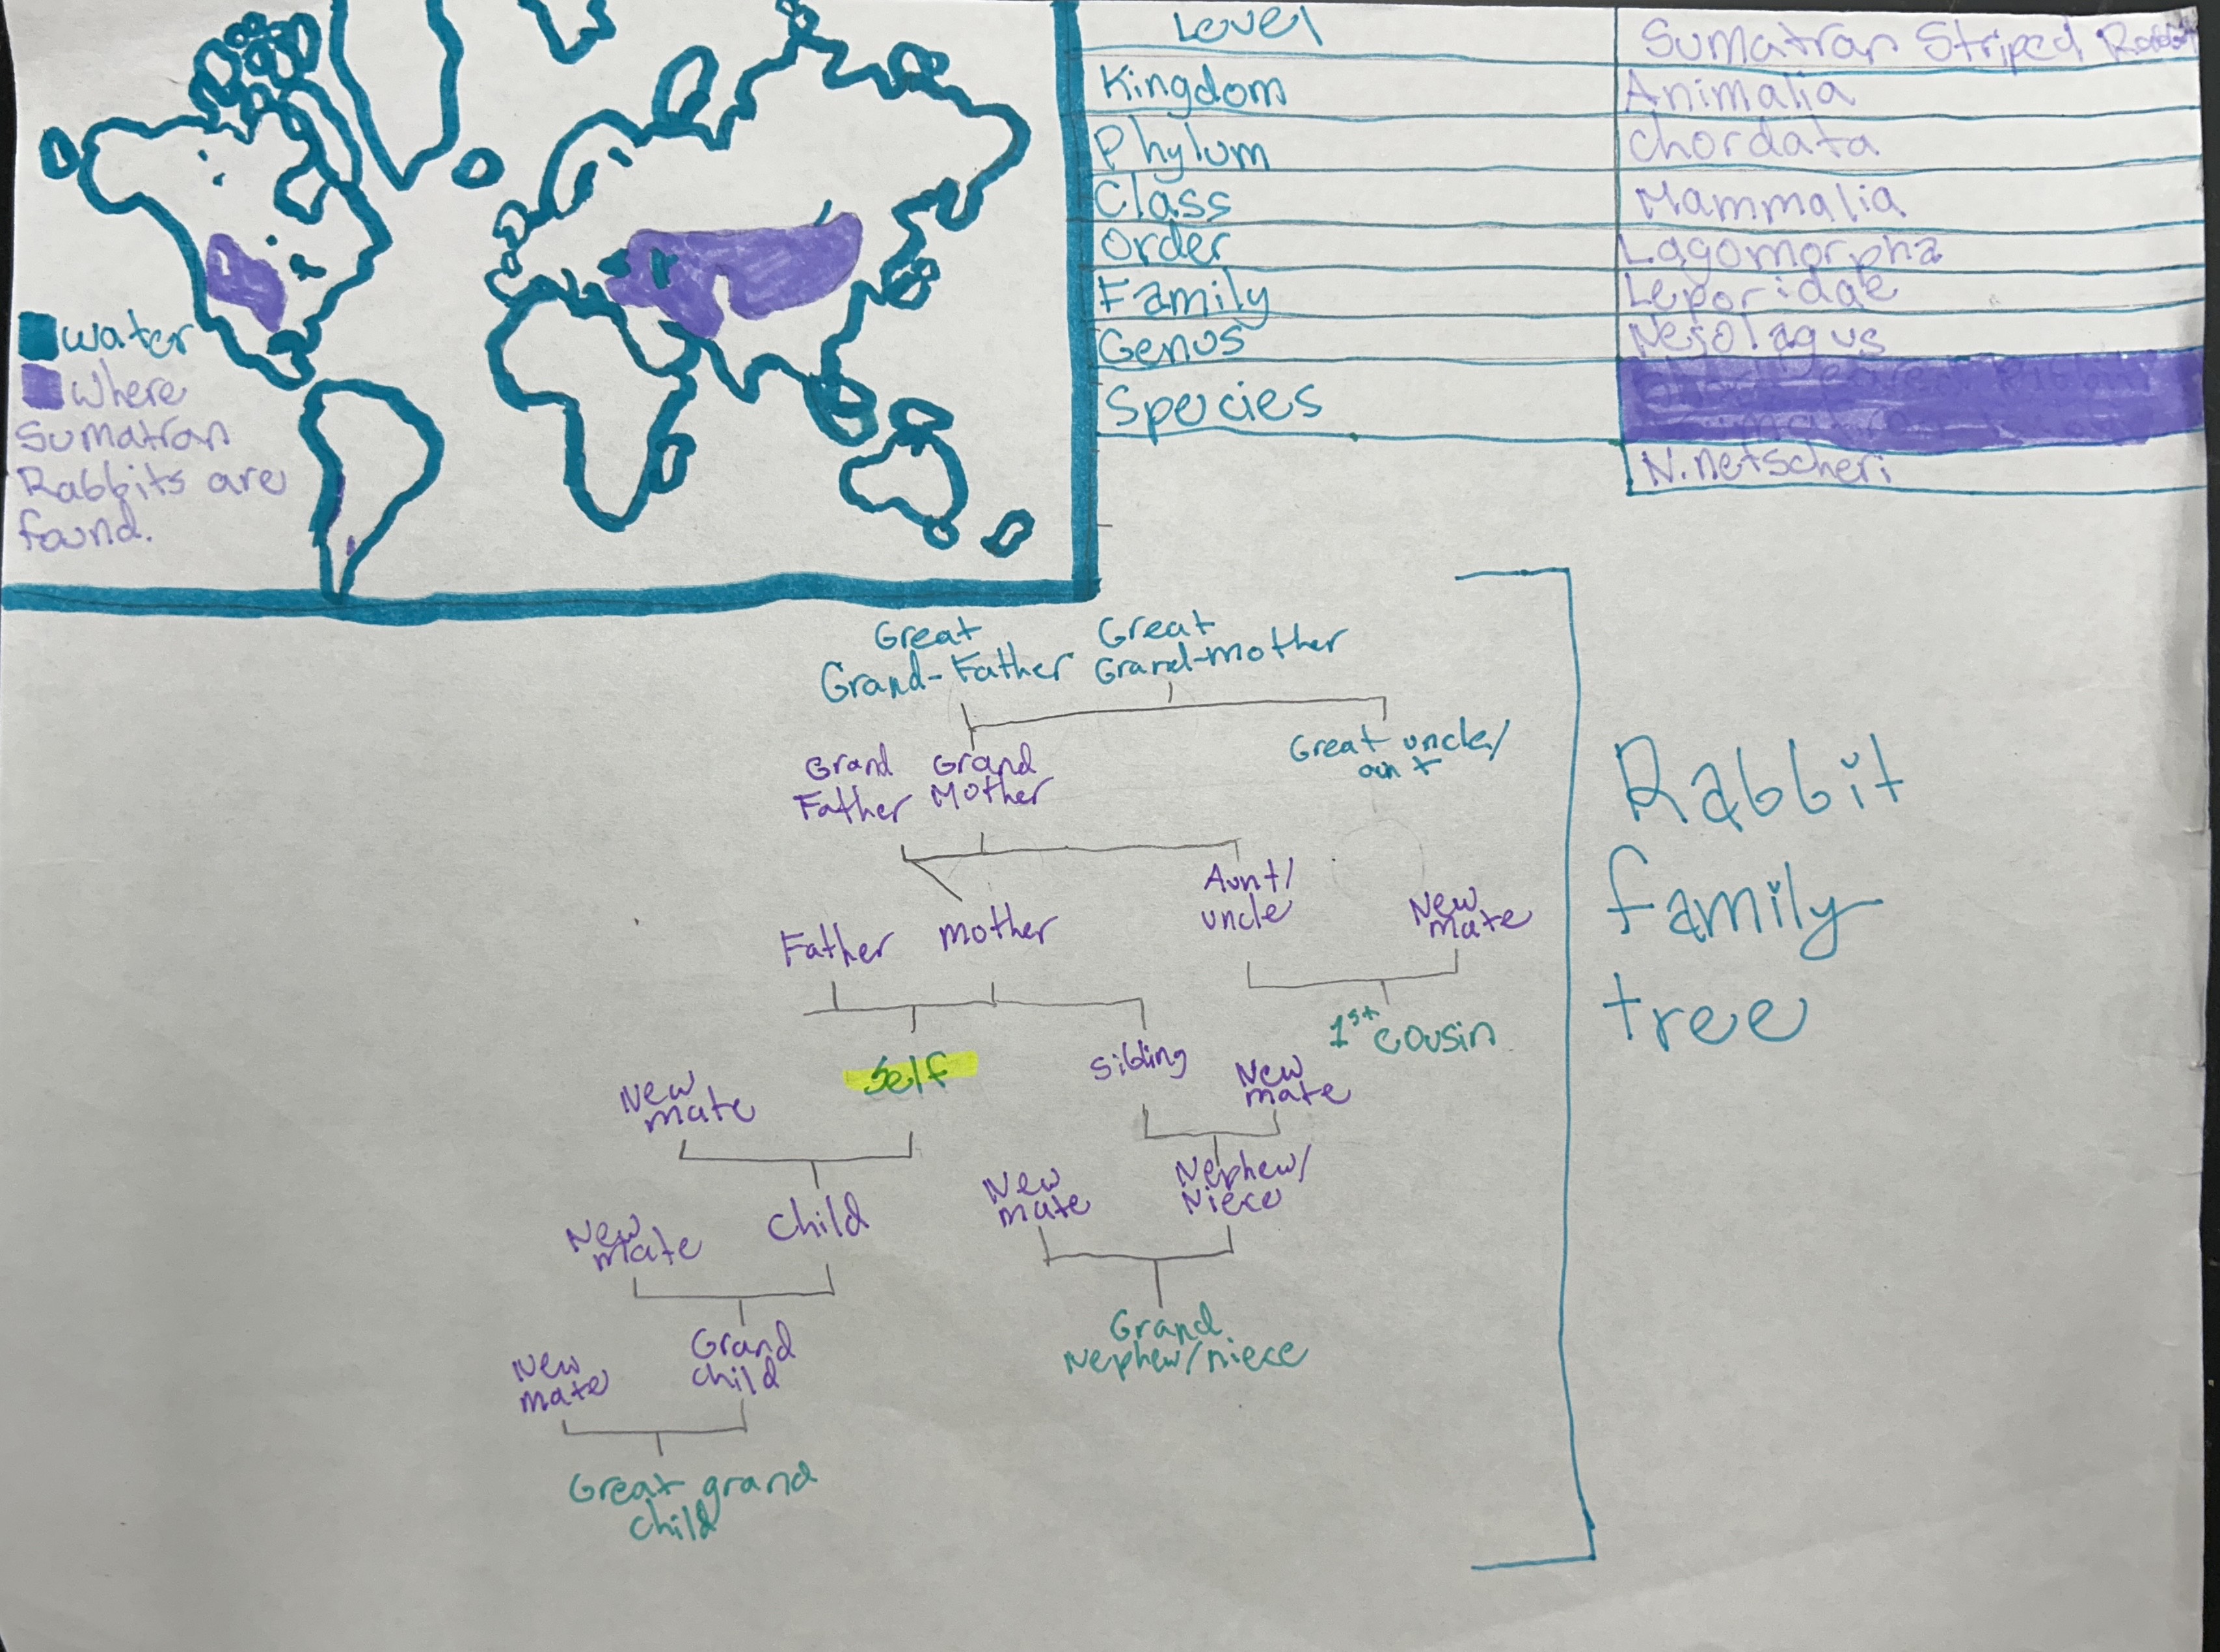 Level
Sumatran Striped Rabbit
Kingdom
Animalia
Phylum
chordata
Class
Mammalia
Order
Lagomorpha
Family
Leporidae
Genus
Nesolagus
Species
N.netscheri
water
Where
Sumatran
Rabbits are
found.
Great
Grand-Father
Great
Grand-mother
Grand
Father
Grand
Mother
Great uncle/
aunt
Father
mother
Aunt/
uncle
New
mate
Self
sibling
1st cousin
New
mate
New
mate
Child
New
mate
Nephew/
Niece
New
mate
New
mate
Grand
child
Grand
Nephew/niece
New
mate
Great grand
child
Rabbit
family
tree